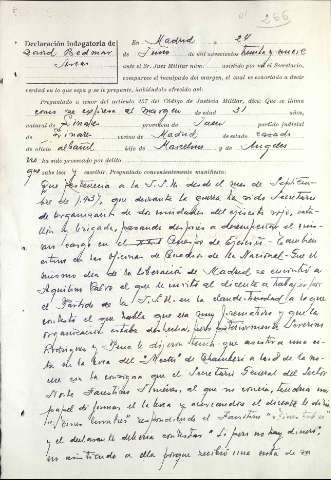 266
Declaración indagatoria de
En Madrid a 24
David Bedmar
de Junio de mil novecientos treinta y nueve
Arcas
ante el Sr. Juez Militar núm. asistido por el Secretario,
comparece el inculpado del margen, el cual es exhortado a decir
verdad en lo que sepa y se le pregunte, habiéndolo ofrecido así.
Preguntado a tenor del artículo 457 del Código de Justicia Militar, dice: Que se llama
como se expresa al margen de edad 31 años,
natural de Linares provincia de Jaen partido judicial
de Linares vecino de Madrid de estado casado
de oficio albañil hijo de Marcelino y de Angeles
no ha sido procesado por delito
que sabe leer y escribir. Preguntado convenientemente manifiesta:
Que pertenecia a la J.S.U. desde el mes de Septiem-
bre de 1.937, que durante la guerra ha sido Secretario
de organización de dos unidades del ejercito rojo, bata-
llón y brigada, pasando despues a desempeñar el mis-
mo cargo en el Consejo de Ejercito
en las Oficinas de Nacional. En el
mismo dia de la liberación de Madrid se encontró a
Calvo el que le invitó al dicente a trabajar por
el Partido de la J.S.U. en la clandestinidad a lo que
contestó el que habla que era muy prematuro y que la
organización estaba deshecha, posteriormente Severino
Rodriguez y le dijeron que asistiera a una ci-
ta en la boca del Metro de Chamberi a las 8 de la no-
che con la consigna que el Secretario General del Sector
Norte Faustino al que no conocia, tendria un
papel de fumar en la boca y acercandose el dicente le diria
respondiendo el Faustino
y el declarante deberia contestar "Si pero no hay dinero",
no asistiendo a ella porque recibió una nota de su